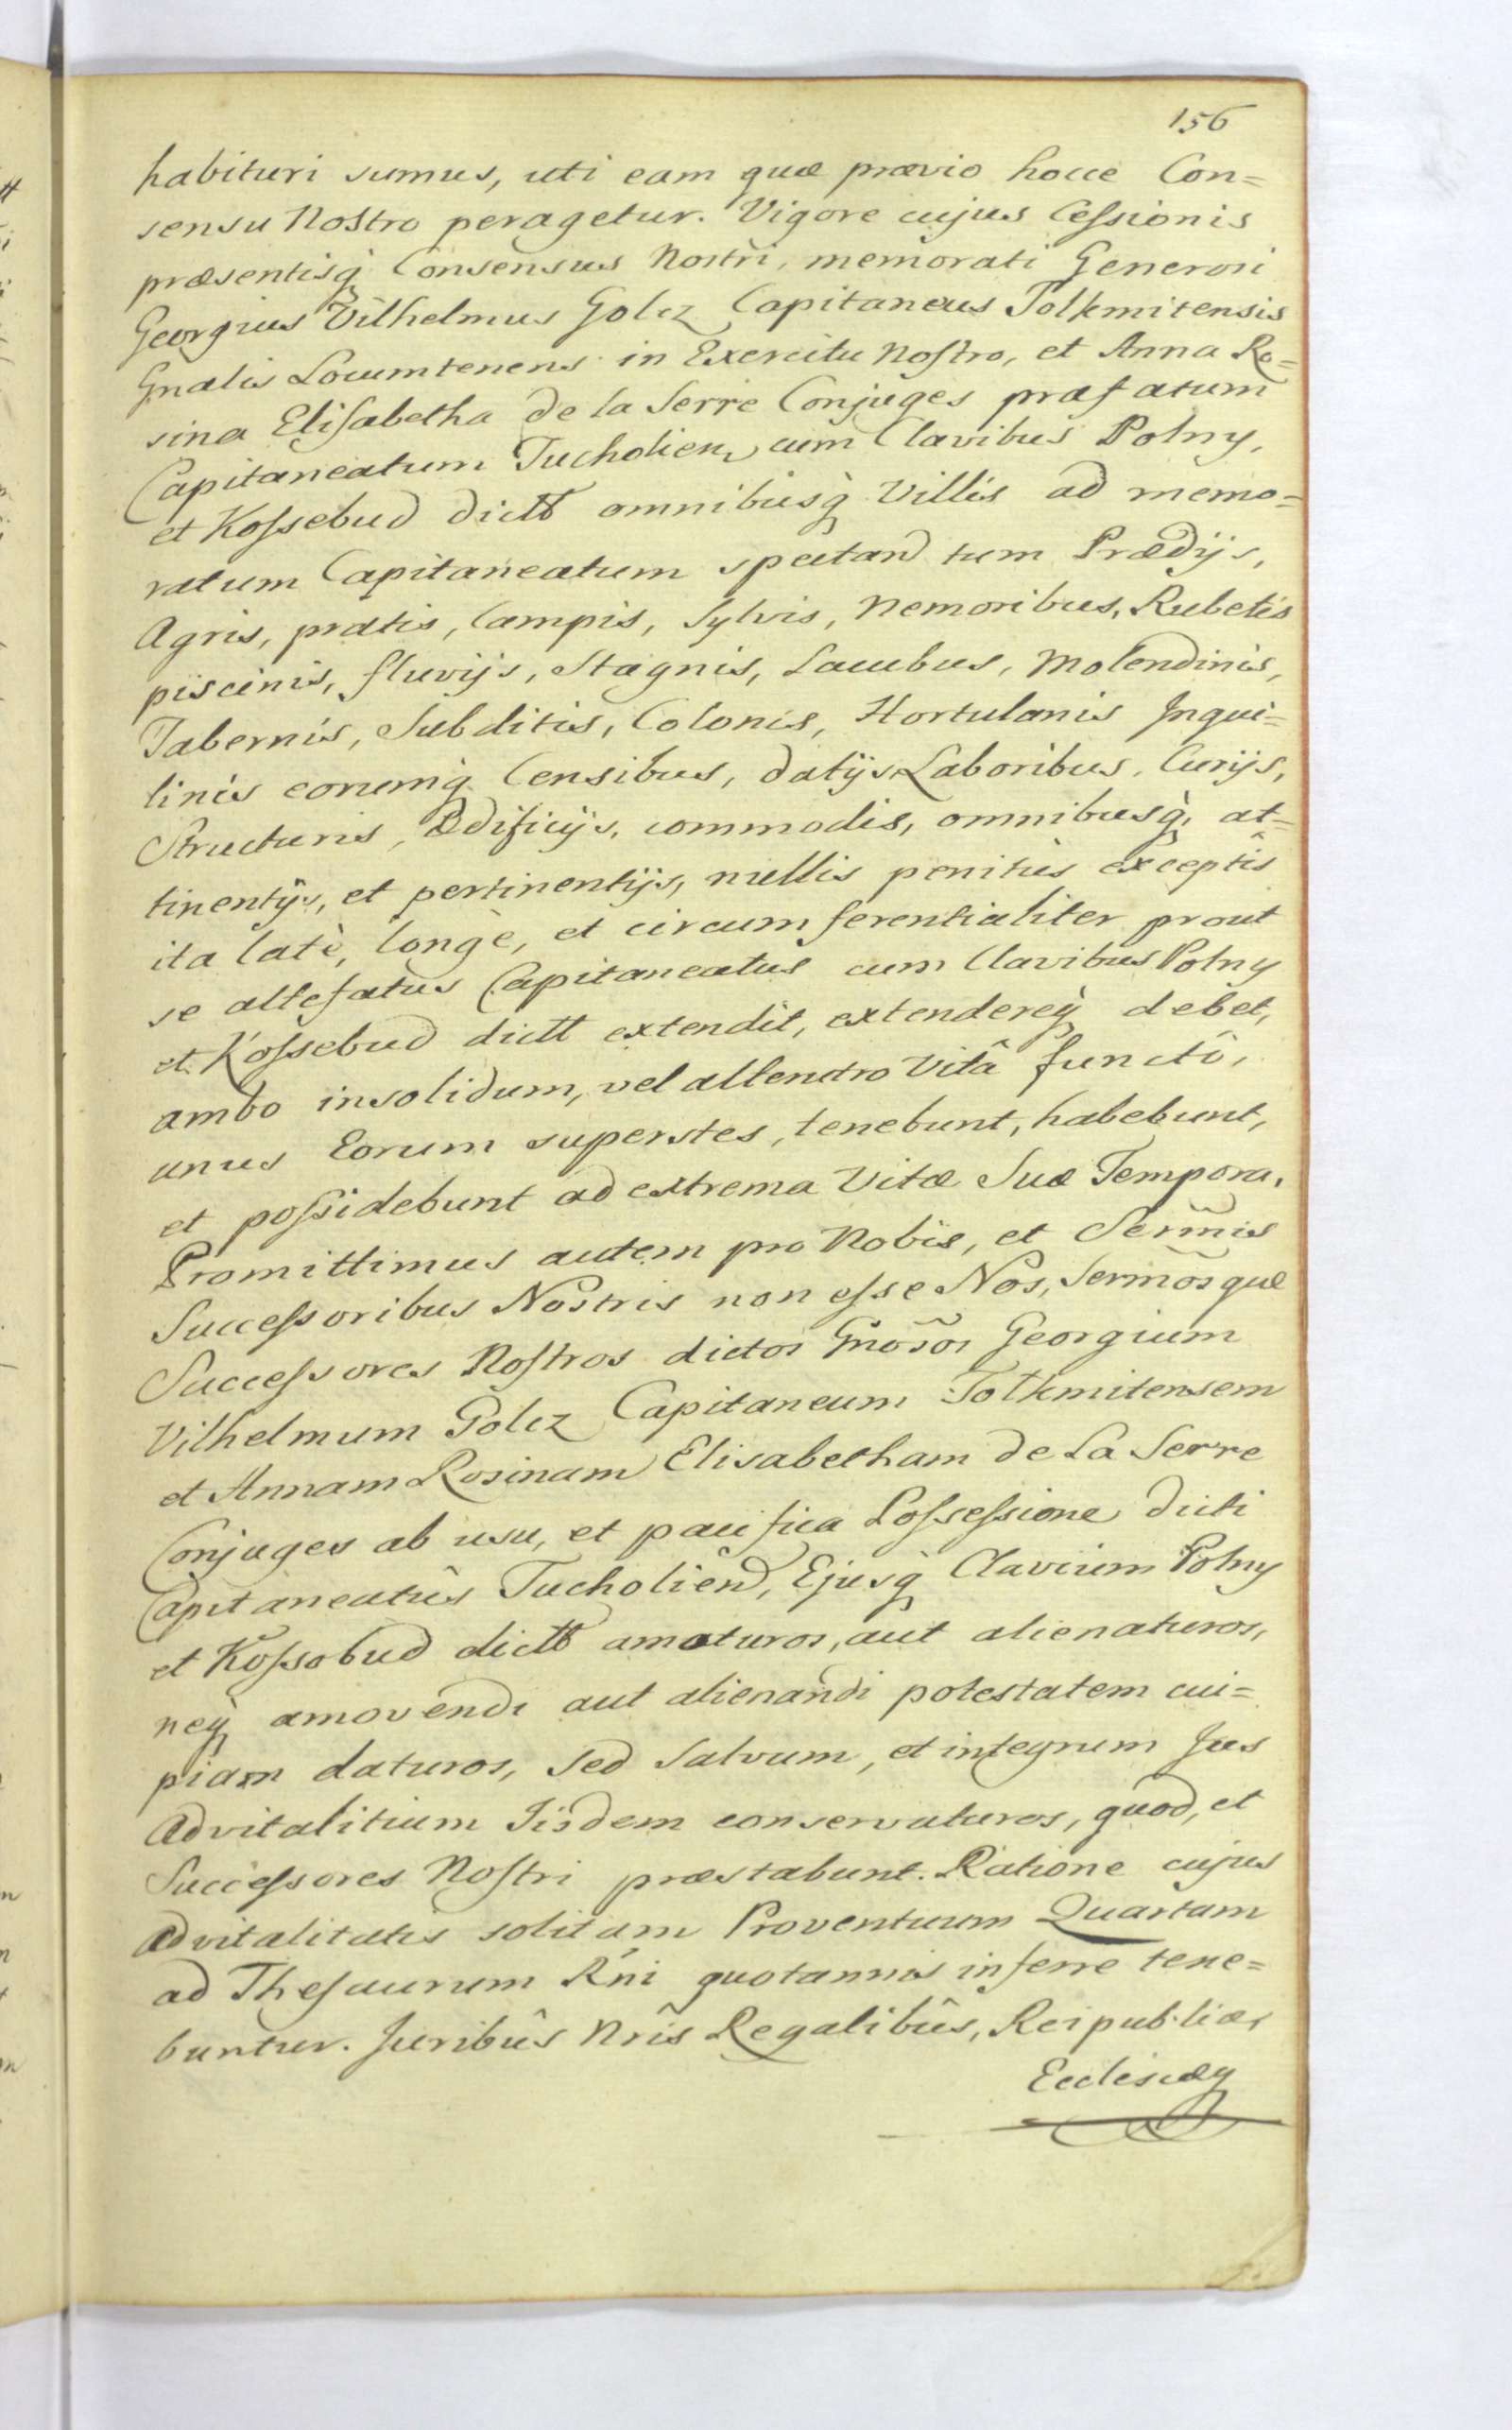 156
habituri sumus, uti eam quæ prævio hocce Con=
sensu Nostro peragetur. Vigore cujus Cessionis
præsentisq̀ Consensus Nostri, memorati Generosi
Georgius Vilhelmus Golcz Capitaneus Tolkmitensis
Gnalis Locumtenens in Exercitu Nostro, et Anna Ro=
sina Elisabetha de la Serre Conjuges præfatum
Capitaneatum Tucholien cum Clavibus Polny,
et Kossebud dictt omnibusq̀ Villis ad memo=
ratum Capitaneatum spectand tum Prædijs,
Agris, pratis, Campis, Sylvis, Nemoribus, Rubetis
piscinis, fluvijs, Stagnis, Lacubus, Molendinis,
Tabernis, Subditis, Colonis, Hortulanis Inqui=
linis eorumq̀ Censibus, datijs Laboribus, Curijs,
Structuris, Ædificijs, commodis, omnibusq̀, at=
tinentijs, et pertinentijs, nullis penitùs exceptis
ita latè, longè, et circumferentialiter prout
se attefatus Capitaneatus cum Clavibus Polny
et Kossebud dictt extendit, extendereq̀ debet,
ambo insolidum, vel alterutro Vitâ functô,
unus Eorum superstes, tenebunt, habebunt,
et possidebunt ad extrema Vitæ Suæ Tempora.
Promittimus autem pro Nobis, et Serm̃is
Successoribus Nostris non esse Nos, Serm̃osque
Successores Nostros dictos Gnõsos Georgium
Vilhelmum Golcz Capitaneum Tolkmitensem
et Annam Rosinam Elisabetham de La Serre
Conjuges ab usu, et pacifica Possessione dicti
Capitaneatûs Tucholien, Ejusq̀ Clavium Polny
et Kossobud dictt amoturos, aut alienaturos,
neq̀ amovendi aut alienandi potestatem cui=
piam daturos, Sed Salvum, et integrum Jus
Advitalitium Iisdem conservaturos, quod, et
Successores Nostri præstabunt. Ratione cujus
Advitalitatis solitam Proventuum Quartam
ad Thesaurum Rńi quotannis inferre tene=
buntur. Juribûs Nrîs Regalibûs, Reipublicæ,
Ecclesiæq